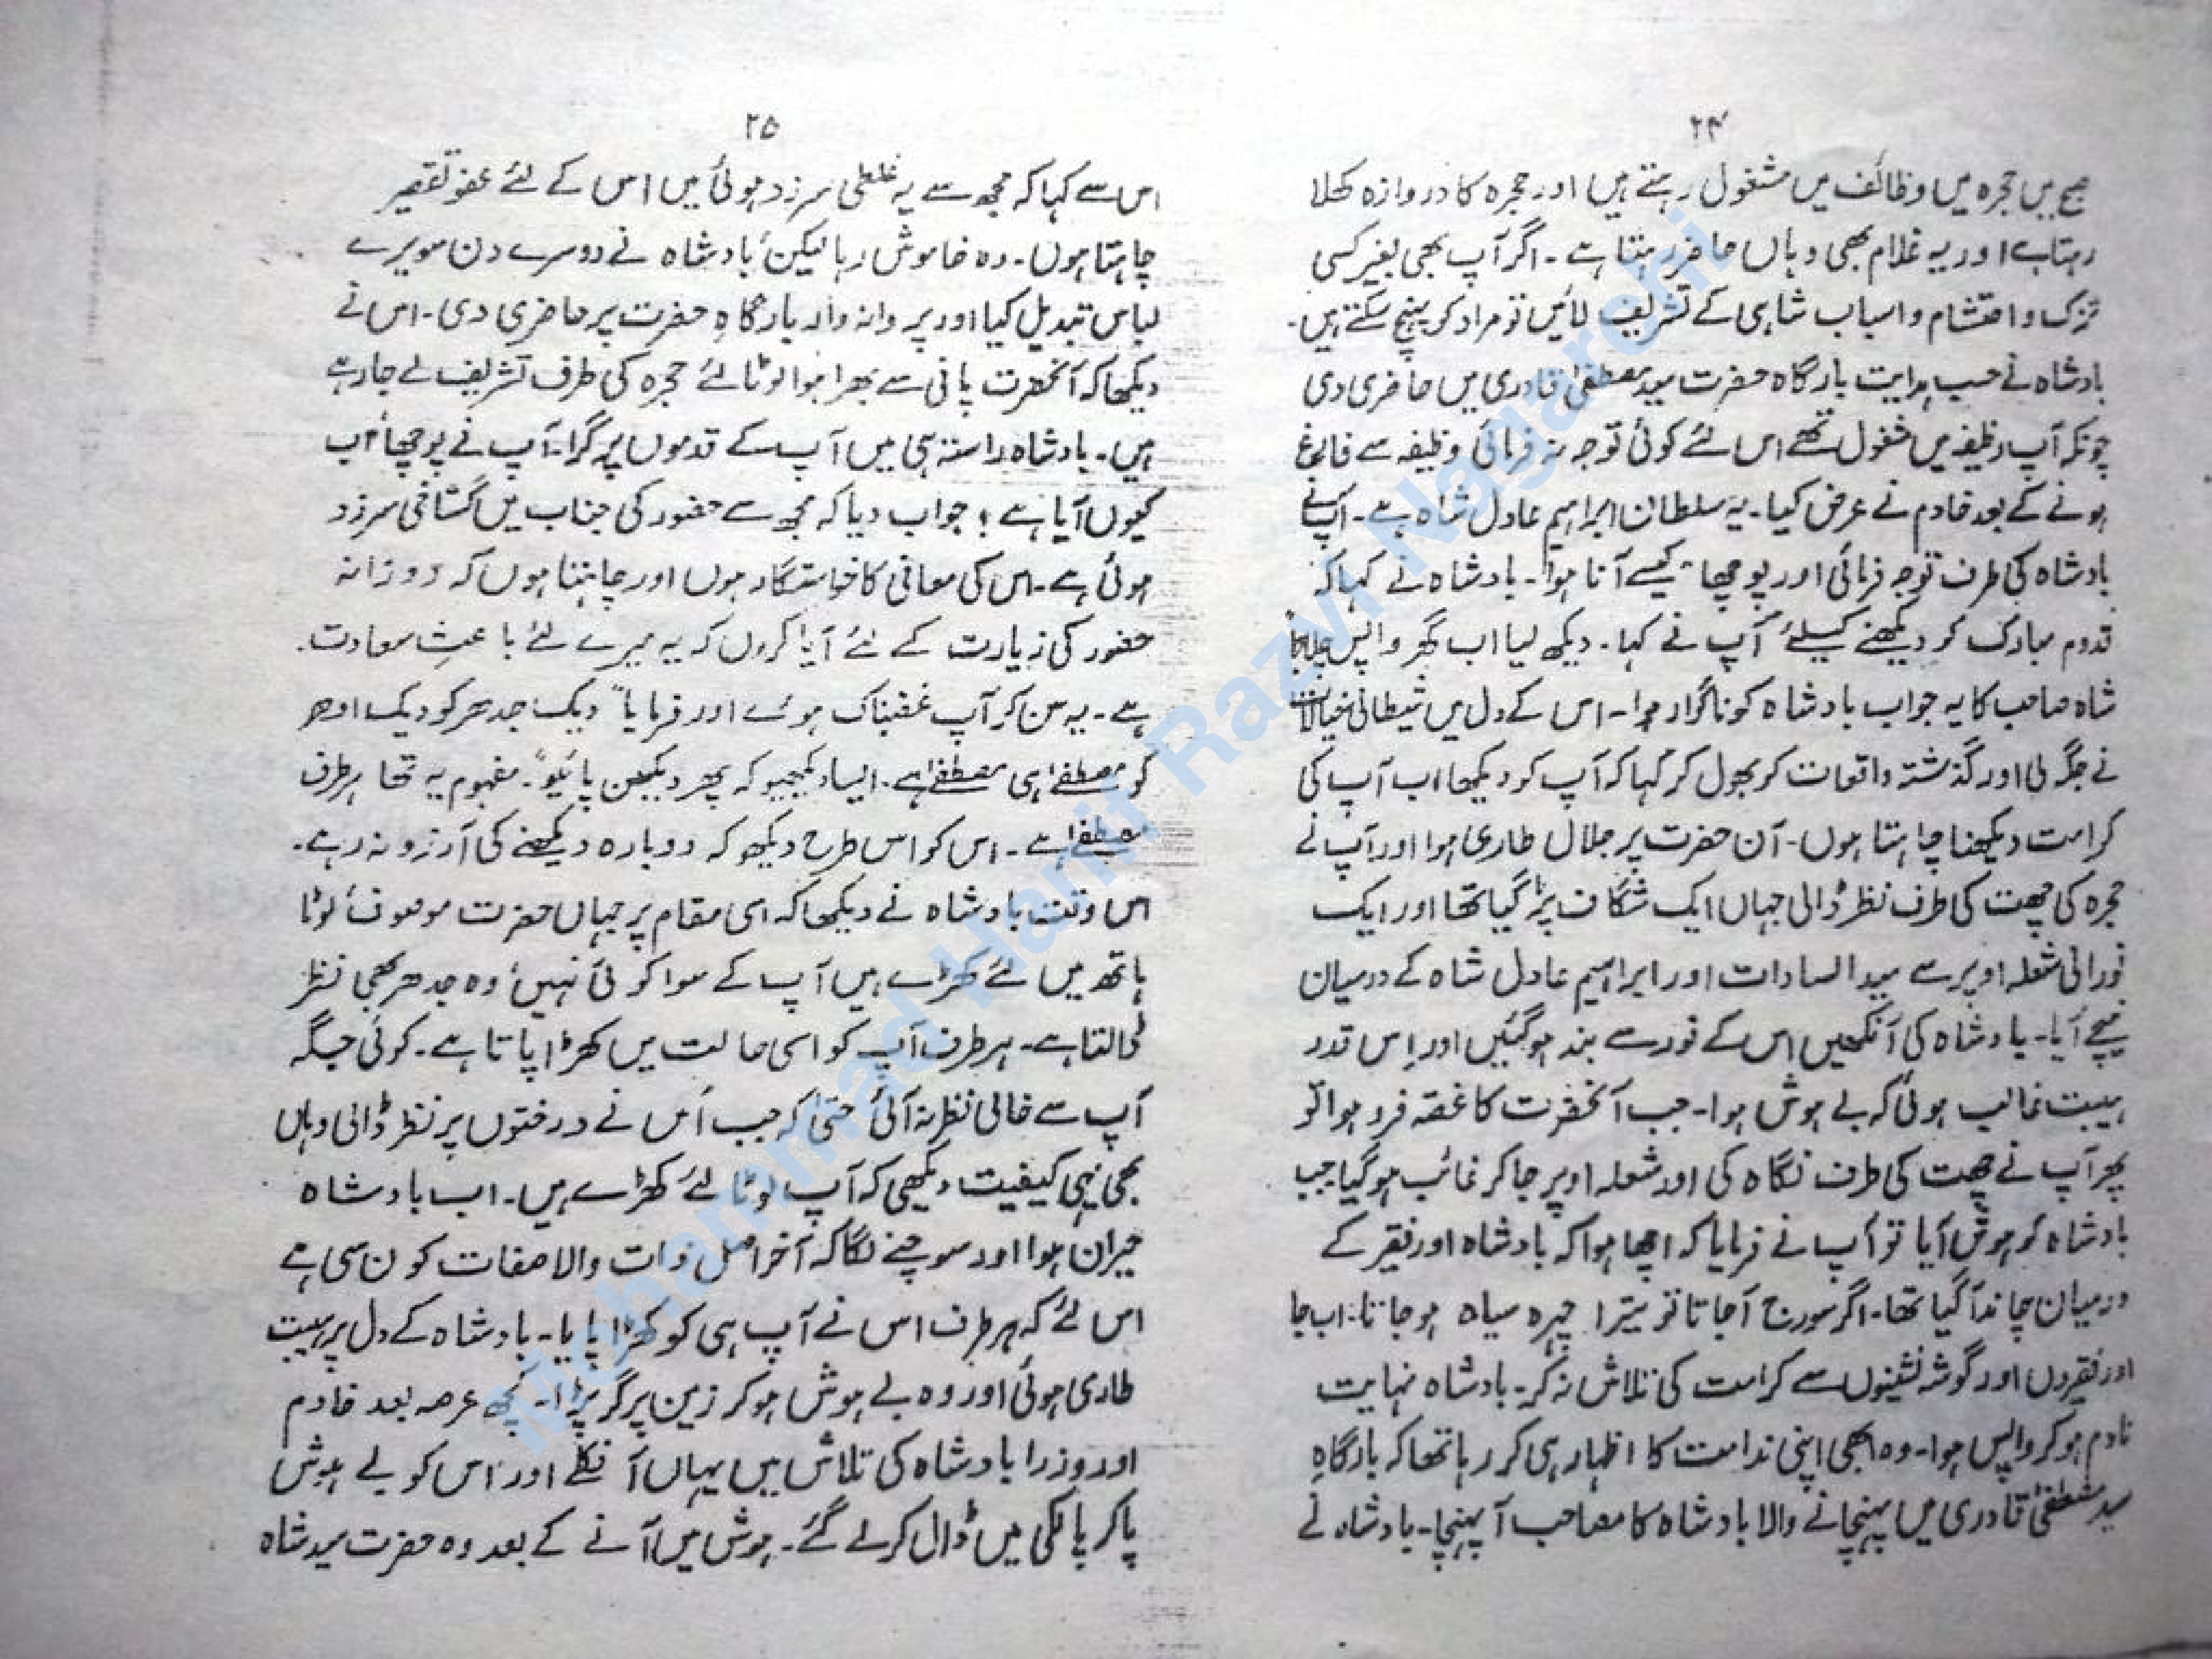 ۲۴
صبح میں حجرہ میں وظائف میں مشغول رہتے ہیں اور حجرہ کا دروازہ کھلا
رہتا ہے اور یہ غلام بھی وہاں حاضر رہتا ہے۔ اگر آپ بھی بغیر کسی
تزک و احتشام و اسباب شاہی کے تشریف لائیں تو مراد کو پہنچ سکتے ہیں۔
بادشاہ نے حسب ہدایت بارگاہ حضرت سید مصطفیٰ قادری میں حاضری دی
چونکہ آپ وظیفہ میں مشغول تھے اس لئے کوئی توجہ نہ فرمائی وظیفہ سے فارغ
ہونے کے بعد خادم نے عرض کیا۔ یہ سلطان ابراہیم عادل شاہ ہے۔ آپ نے
بادشاہ کی طرف توجہ فرمائی اور پوچھا "کیسے آنا ہوا"۔ بادشاہ نے کہا کہ
قدوم مبارک کو دیکھنے کیلئے" آپ نے کہا۔ دیکھ لیا اب گھر واپس چلا جا"
شاہ صاحب کا یہ جواب بادشاہ کو ناگوار ہوا۔ اس کے دل میں شیطانی خیالات
نے جگہ لی اور گذشتہ واقعات کو بھول کر کہا کہ آپ کو دیکھا اب آپ کی
کرامت دیکھنا چاہتا ہوں۔ آن حضرت پر جلال طاری ہوا اور آپ نے
حجرہ کی چھت کی طرف نظر ڈالی جہاں ایک شگاف پڑ گیا تھا اور ایک
نورانی شعلہ اوپر سے سید السادات اور ابراہیم عادل شاہ کے درمیان
نیچے آیا۔ بادشاہ کی آنکھیں اس کے نور سے بند ہو گئیں اور اِس قدر
ہیبت غالب ہوئی کہ بے ہوش ہوا۔ جب آنحضرت کا غصّہ فرو ہوا تو
پھر آپ نے چھت کی طرف نگاہ کی اور شعلہ اوپر جا کر غائب ہو گیا جب
بادشاہ کو ہوش آیا تو آپ نے فرمایا کہ اچھا ہوا کہ بادشاہ اور فقیر کے
درمیان چاند آ گیا تھا۔ اگر سورج آ جاتا تو تیرا چہرہ سیاہ ہو جاتا۔ اب جا
اور فقیروں اور گوشہ نشینوں سے کرامت کی تلاش نہ کر۔ بادشاہ نہایت
نادم ہو کر واپس ہوا۔ وہ ابھی اپنی ندامت کا اظہار ہی کر رہا تھا کہ بارگاہِ
سید مصطفیٰ قادری میں پہنچانے والا بادشاہ کا مصاحب آ پہنچا۔ بادشاہ نے
۲۵
اس سے کہا کہ مجھ سے یہ غلطی سرزد ہوئی میں اس کے لئے عفو تقصیر
چاہتا ہوں۔ وہ خاموش رہا لیکن بادشاہ نے دوسرے دن سویرے
لباس تبدیل کیا اور پروانہ وار بارگاہِ حضرت پر حاضری دی۔ اس نے
دیکھا کہ آنحضرت پانی سے بھرا ہوا لوٹا لئے حجرہ کی طرف تشریف لے جا رہے
ہیں۔ بادشاہ راستہ ہی میں آپ کے قدموں پر گرا۔ آپ نے پوچھا اب
کیوں آیا ہے؟ جواب دیا کہ مجھ سے حضور کی جناب میں گستاخی سرزد
ہوئی ہے۔ اس کی معافی کا خواستگار ہوں اور چاہتا ہوں کہ روزانہ
حضور کی زیارت کے لئے آیا کروں کہ یہ میرے لئے باعثِ سعادت۔
ہے۔ یہ سن کر آپ غضبناک ہوئے اور فرمایا "دیک جدھر کو دیک اودھر
کو مصطفےٰ ہی مصطفےٰ ہے۔ ایسا دیکھیو کہ پھر دیکھن پائیو"۔ مفہوم یہ تھا ہر طرف
مصطفےٰ ہے۔ اس کو اس طرح دیکھو کہ دوبارہ دیکھنے کی آرزو نہ رہے۔
اس وقت بادشاہ نے دیکھا کہ اسی مقام پر جہاں حضرت موصوف لوٹا
ہاتھ میں لئے کھڑے ہیں آپ کے سوا کوئی نہیں وہ جدھر بھی نظر
ڈالتا ہے۔ ہر طرف آپ کو اسی حالت میں کھڑا پاتا ہے۔ کوئی جگہ
آپ سے خالی نظر نہ آئی حتیٰ کہ جب اُس نے درختوں پر نظر ڈالی وہاں
بھی یہی کیفیت دیکھی کہ آپ لوٹا لئے کھڑے ہیں۔ اب بادشاہ
حیران ہوا اور سوچنے لگا کہ آخر اصل ذات والا صفات کون سی ہے
اس لئے کہ ہر طرف اس نے آپ ہی کو کھڑا پایا۔ بادشاہ کے دل پر ہیبت
طاری ہوئی اور وہ بے ہوش ہو کر زمین پر گر پڑا۔ کچھ عرصہ بعد خادم
اور وزرا بادشاہ کی تلاش میں یہاں آ نکلے اور اس کو بے ہوش
پا کر پالکی میں ڈال کر لے گئے۔ ہوش میں آنے کے بعد وہ حضرت سید شاہ
Mohammad Hanif Razvi Nagarchi